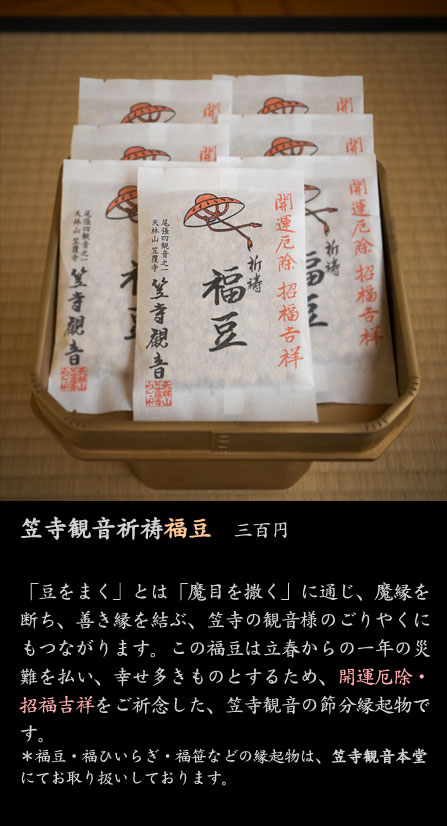 開運厄除 招福吉祥
祈祷
福豆
尾張四観音之一
天林山 笠覆寺
笠寺觀音
尾張四観音之一
天林山 笠覆寺
笠寺觀音
福
開運厄除 招福吉祥
豆
開
開
笠寺観音祈祷福豆 三百円
「豆をまく」とは「魔目を撒く」に通じ、魔縁を
断ち、善き縁を結ぶ、笠寺の観音様のごりやくに
もつながります。この福豆は立春からの一年の災
難を払い、幸せ多きものとするため、開運厄除・
招福吉祥をご祈念した、笠寺観音の節分縁起物で
す。
＊福豆・福ひいらぎ・福笹などの縁起物は、笠寺観音本堂
にてお取り扱いしております。